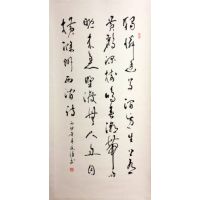 獨憐幽草澗邊生上有
黄鸝深樹鳴春潮帶雨
晚来急野渡無人舟自
橫滁州西澗詩